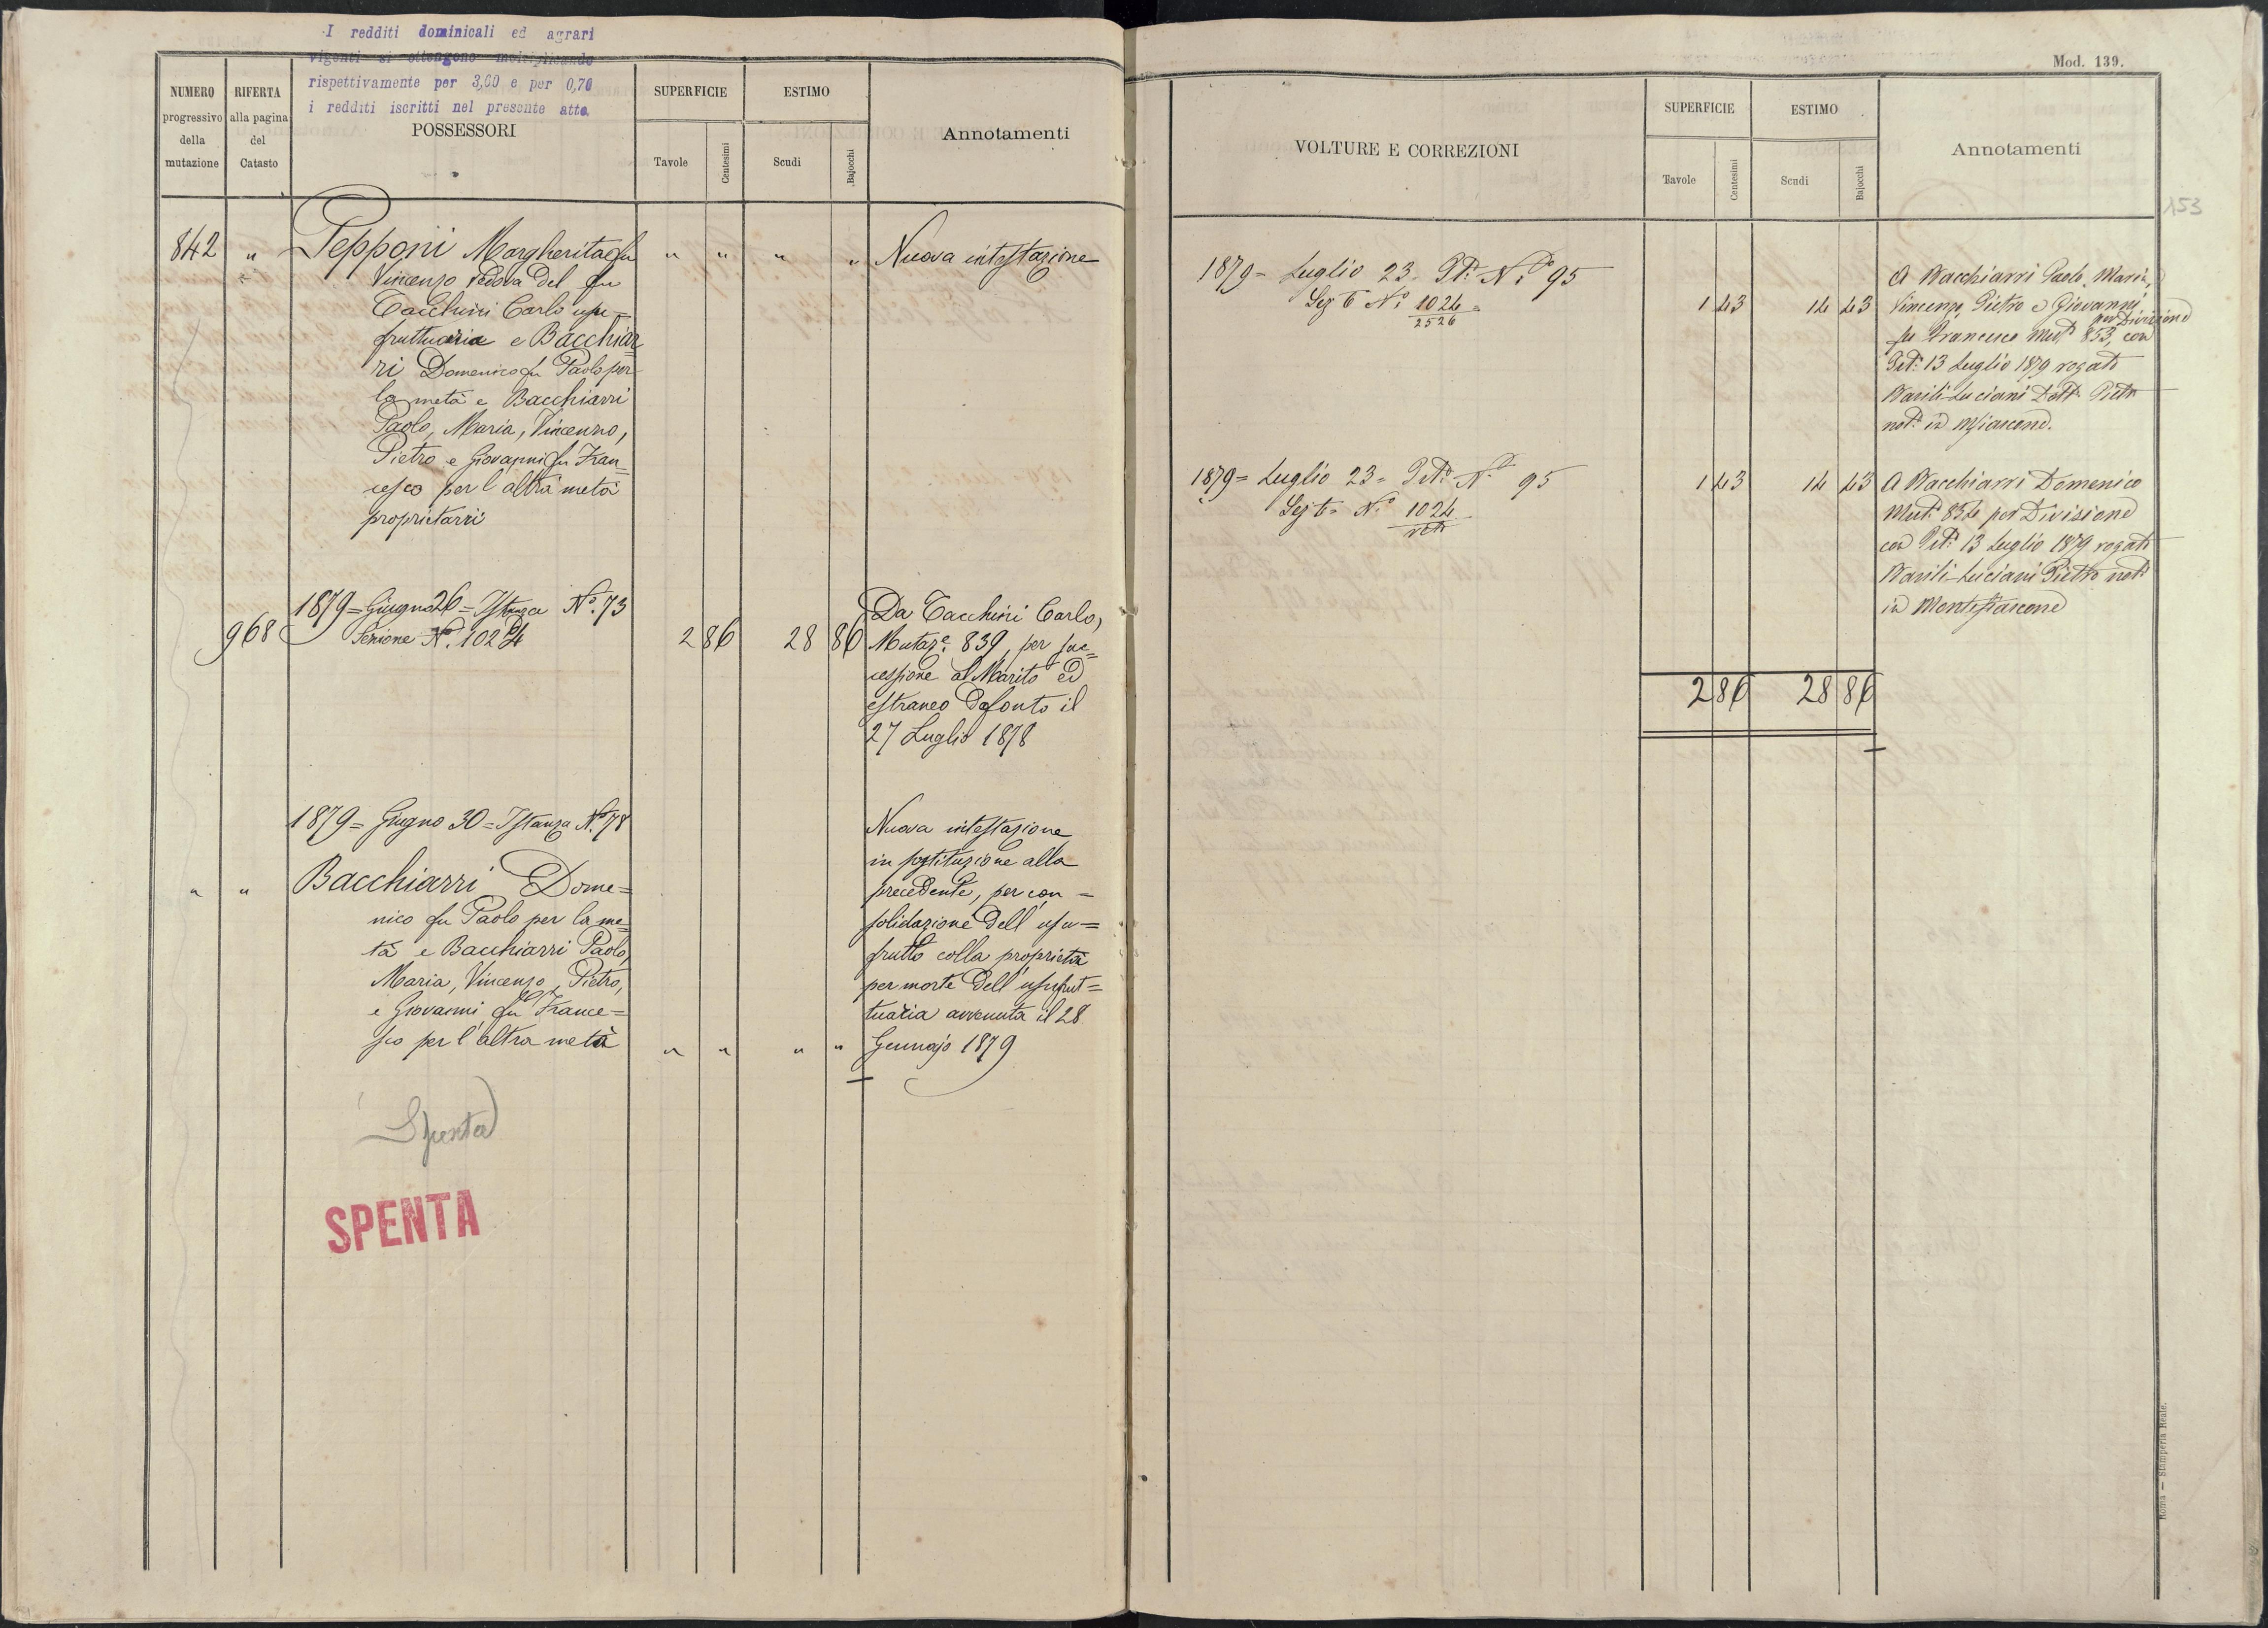 I redditi dominicali ed agrari
vigenti si ottengono moltiplicando
rispettivamente per 3,60 e per 0,70
i redditi iscritti nel presente atto.
NUMERO
progressivo
della
mutazione
RIFERTA
alla pagina
del
Catasto
POSSESSORI
SUPERFICIE
Tavole
Centesimi
ESTIMO
Scudi
Bajocchi
Annotamenti
842 " Pepponi Margherita fu " " " " Nuova intestazione
Vincenzo vedova del fu
Tacchini Carlo usu=
fruttuaria e Bacchiar=
ri Domenico fu Paolo per
la metà e Bacchiarri
Paolo, Maria, Vincenzo,
Pietro e Giovanni fu Fran=
cesco per l'altra metà
proprietarri
1879= Giugno 26= Istanza N.º 73
968 Sezione N. 1024 2 86 28 86
Da Tacchini Carlo,
Mutaz.e 839, per suc=
cessione al Marito ed
estraneo defonto il
27 Luglio 1878
1879= Giugno 30= Istanza N.º 78
" " Bacchiarri Dome=
nico fu Paolo per la me=
tà e Bacchiarri Paolo,
Maria, Vincenzo, Pietro,
e Giovanni fu France=
sco per l'altra metà " " " "
Nuova intestazione
in sostituzione alla
precedente, per con=
solidazione dell'usu=
frutto colla proprietà
per morte dell'usufrut=
tuaria avvenuta il 28
Gennajo 1879
Spenta
SPENTA
Mod. 139.
VOLTURE E CORREZIONI
SUPERFICIE
Tavole
Centesimi
ESTIMO
Scudi
Bajocchi
Annotamenti
153
1879= Luglio 23= N.º 95
Sez 6 N.º 1024 1 43 14 43
2526
A Bacchiarri Paolo, Maria,
Vincenzo, Pietro e Giovanni
per Divisione
fu Francesco Mut.e 853, con
13 Luglio 1879 rogato
Basili-Luciani Dott. Pietro
not.º in Mfiascone.
1879= Luglio 23= N.º 95
Sez 6= N.º 1024 1 43 14 43
A Bacchiarri Domenico
Mut.e 854 per Divisione
con 13 Luglio 1879 rogato
Basili-Luciani Pietro not.º
in Montefiascone
2 86 28 86
Roma — Stamperia Reale.